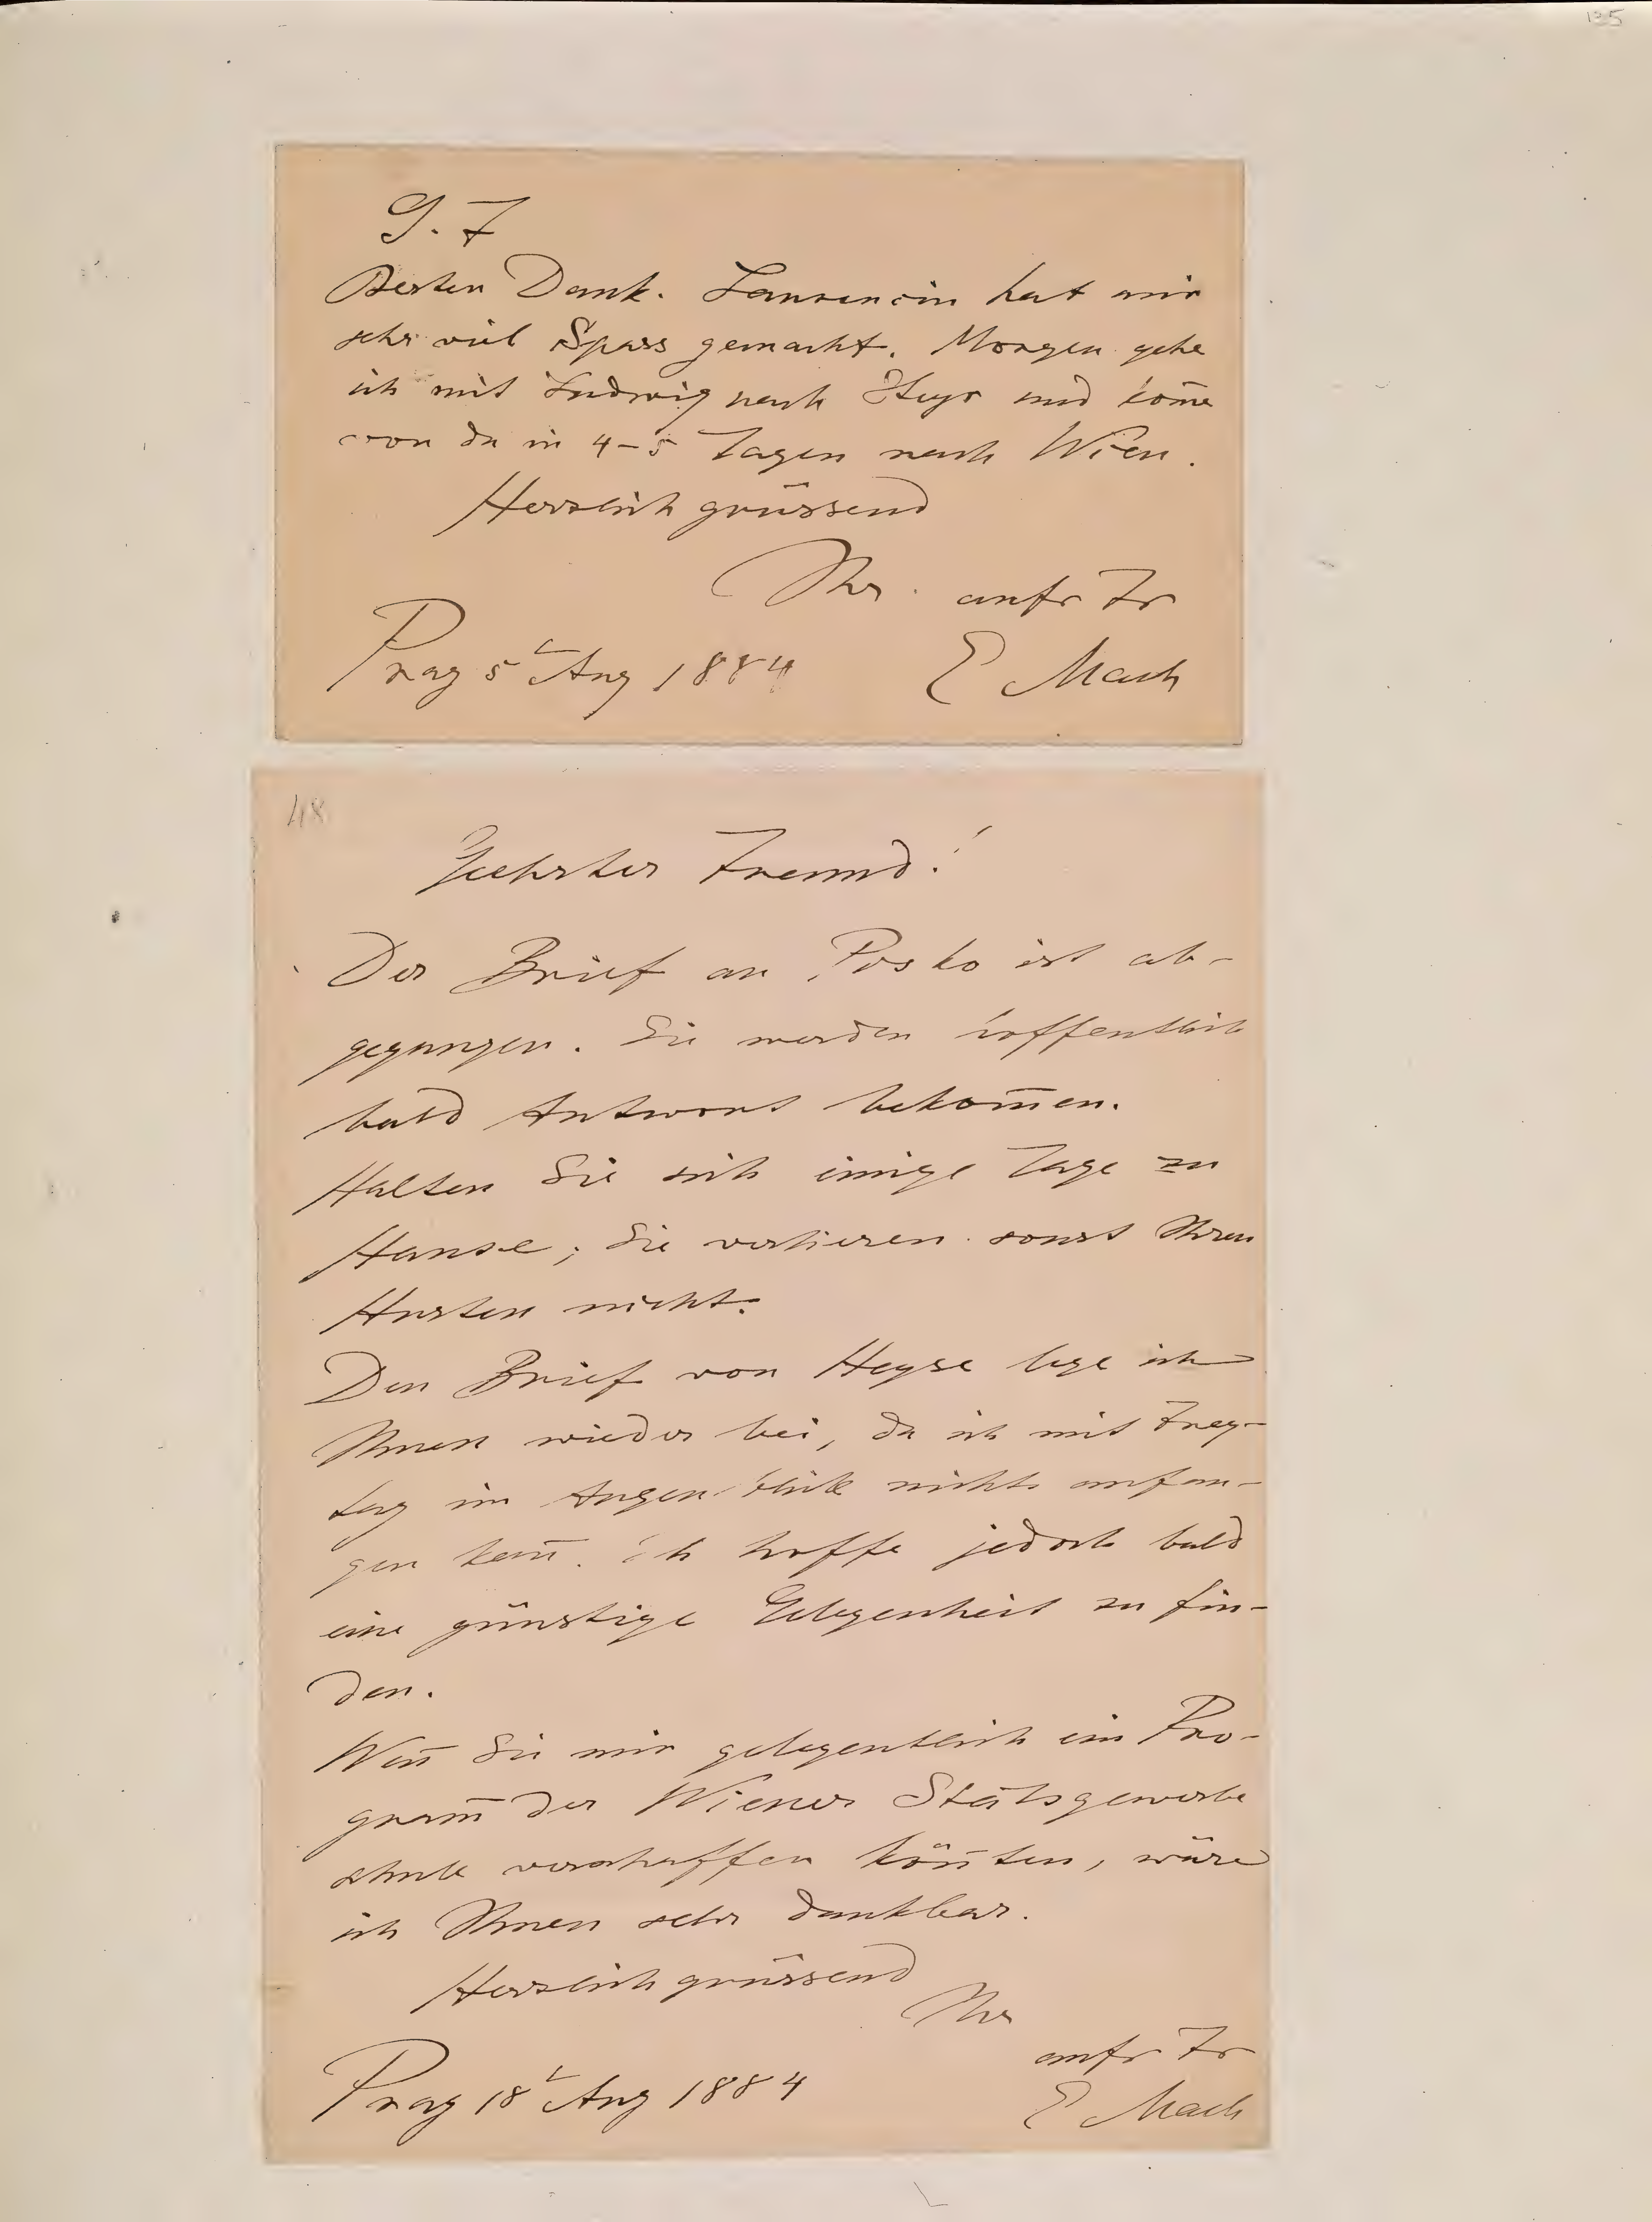 135
G. F
Besten Dank. Laurencin hat mir
sehr viel Spass gemacht. Morgen gehe
ich mit Ludwig nach Steyr und kom̅e
von da in 4–5 Tagen nach Wien.
Herzlich grüssend
Ihr aufr Fr
Prag 5t Aug 1884 E Mach
48
Geehrter Freund!
Der Brief an Posko ist ab-
gegangen. Sie werden hoffentlich
bald Antwort bekom̅en.
Halten Sie sich einige Tage zu
Hause; Sie verlieren sonst Ihren
Husten nicht.
Den Brief von Heyse lege ich
Ihnen wieder bei, da ich mit Frey-
tag im Augenblick nichts anfan-
gen kan̅. Ich hoffe jedoch bald
eine günstige Gelegenheit zu fin-
den.
Wen̅ Sie mir gelegentlich ein Pro-
gram̅ der Wiener Statsgewerbe
schule verschaffen kön̅ten, wäre
ich Ihnen sehr dankbar.
Herzlich grüssend
Ihr
aufr Fr
Prag 18t Aug 1884 E Mach